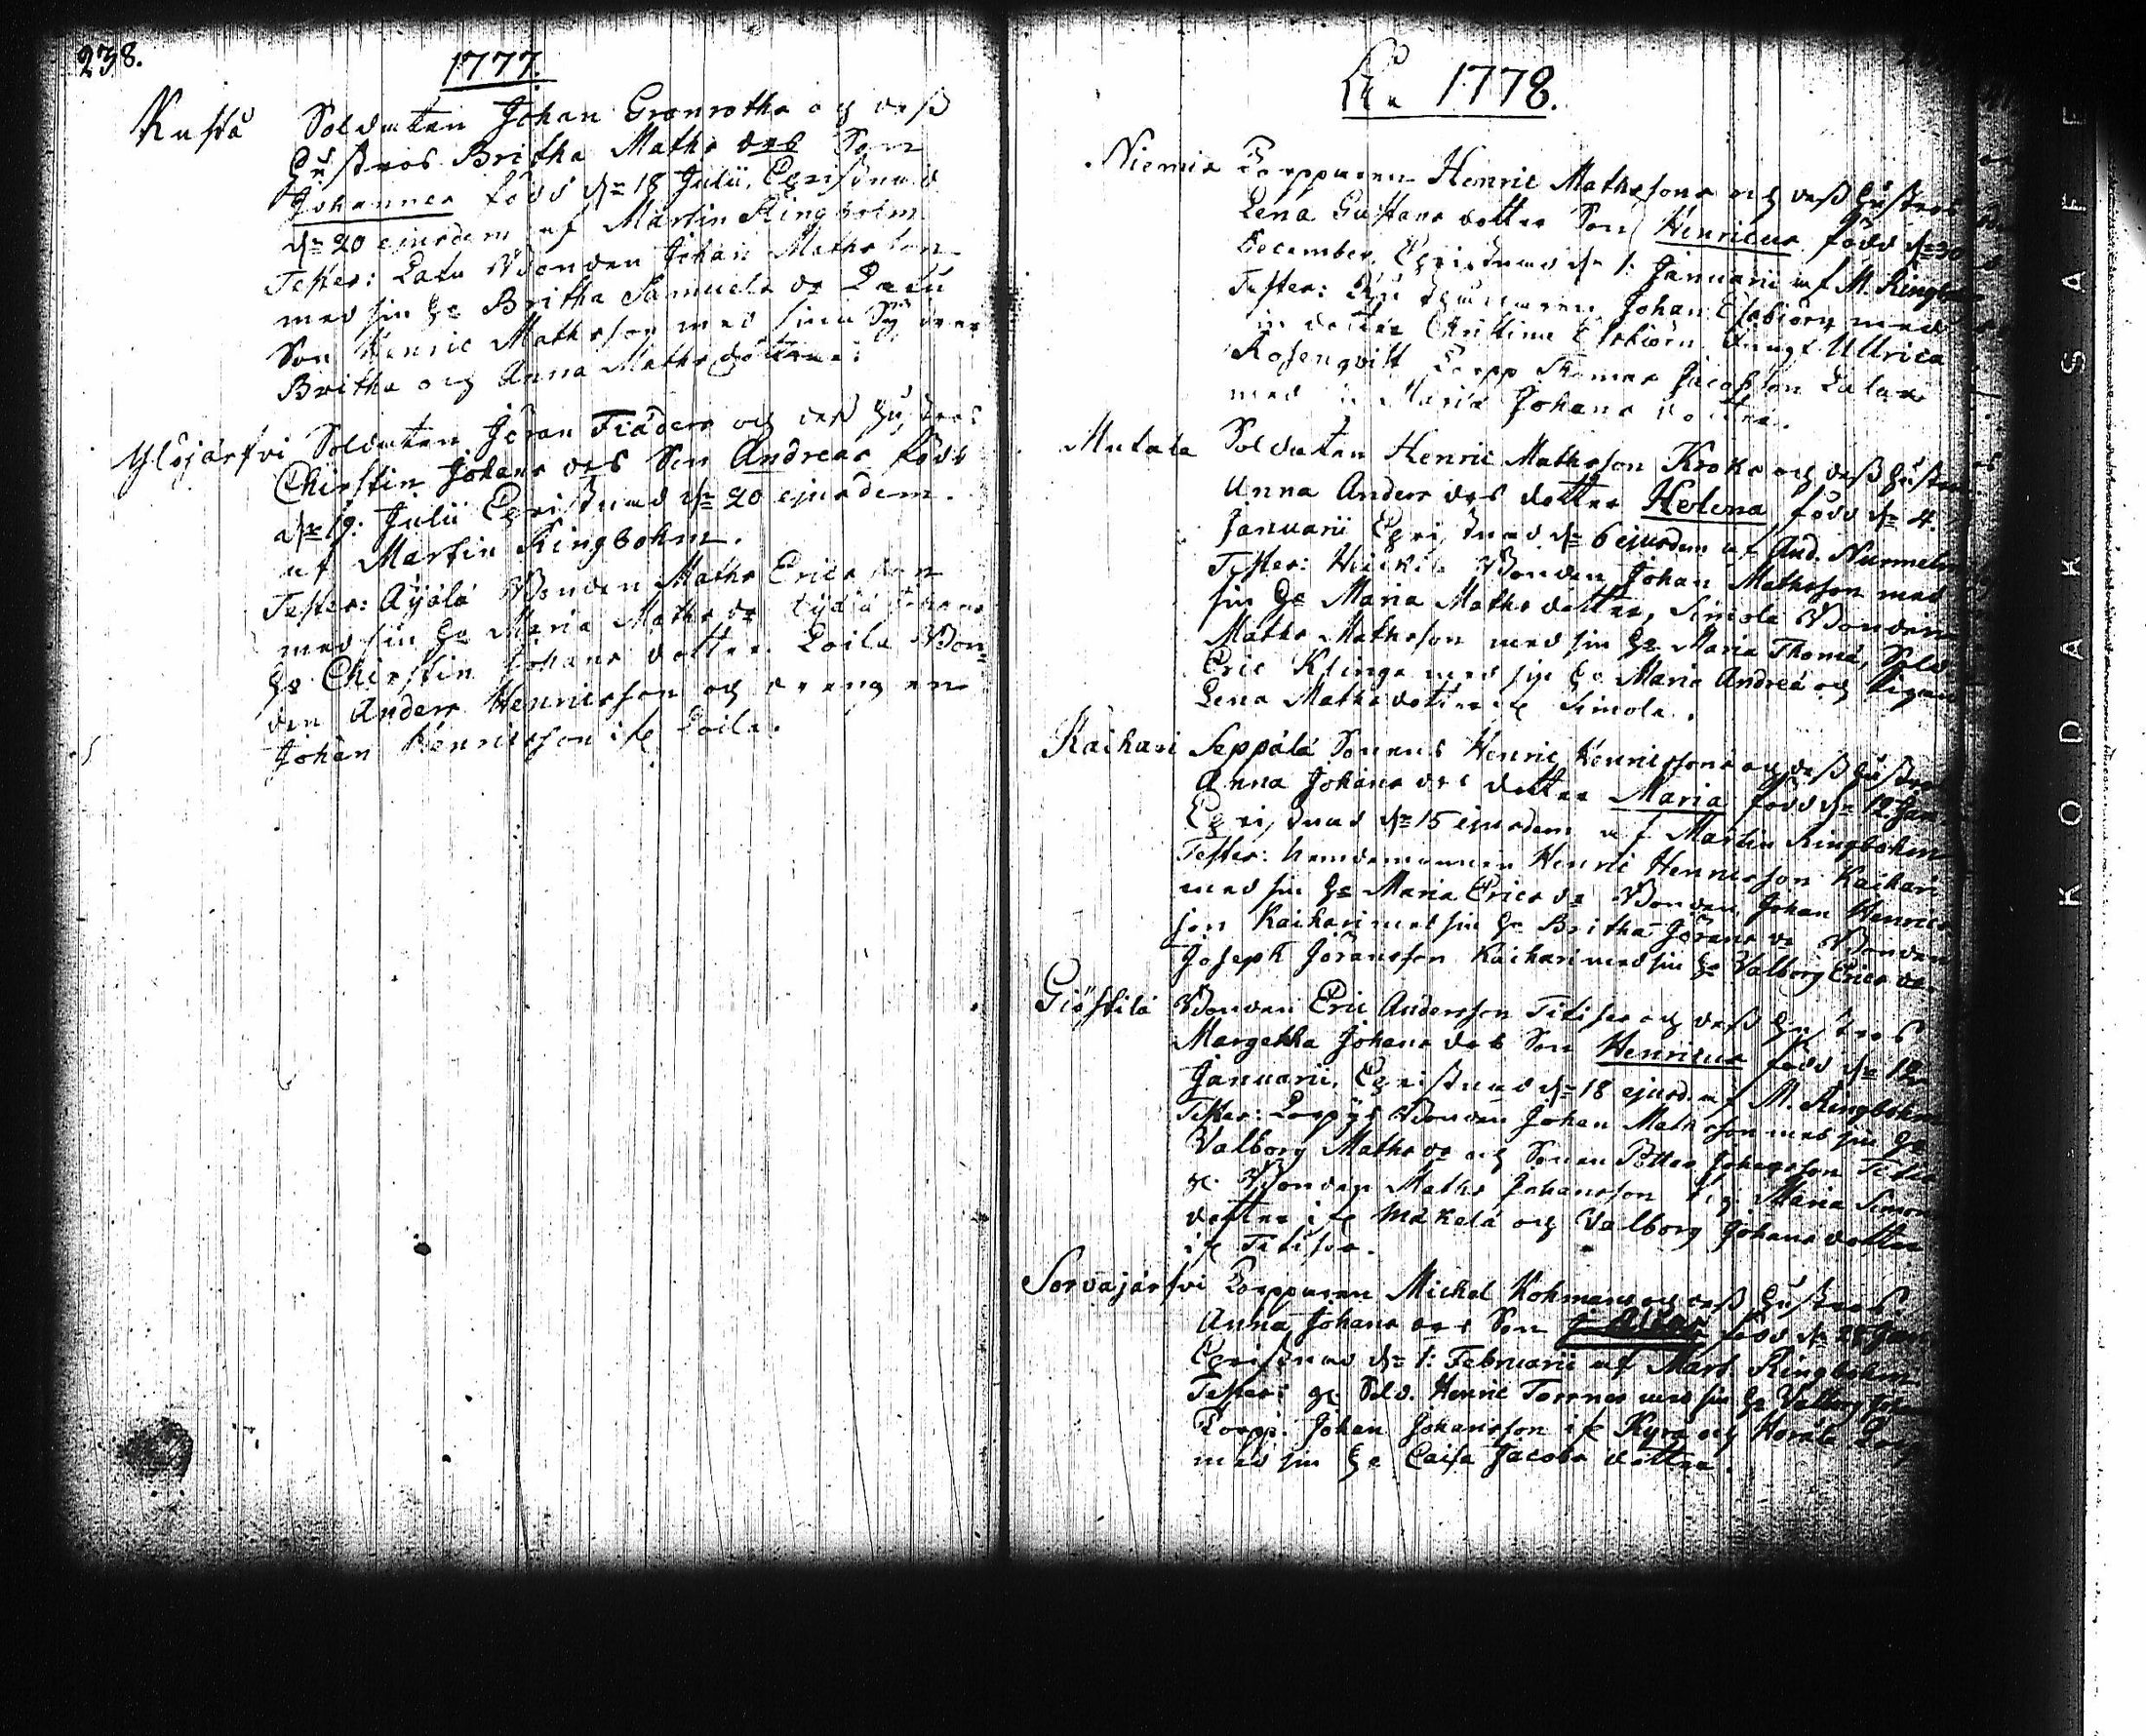 238.
1777.
Kusta Soldaten Johan Grönroths och dess
hustrus Britha Mats drs Son
Johannes född dn 18 Julii, Christnad
dn 20 ejusdem af Martin Ringbohm
Testes: Latu Bonden Johan Mathsson
med sin h. Britha Samuels dr Latu
Son Henric Mathsson med sina
Britha och Anna Mathsdöttrar.
Ylöjärfvi Soldaten Jöran Fiäders och dess hustrus
Chirstin Johans drs Son Andreas född
dn 19. Julii Christnad dn 20 ejusdem.
af Martin Ringbohm.
Testes: Äÿälä Bonden Maths Ericsson
med sin h. Maria Maths dr
h. Chirstin Johans dotter. Loila Bon-
den Anders Henricsson och drengen
Johan Henricsson ifr Loila.
1778.
Niemis Torpparen Henric Mathssons och dess hustrus
Lena Gustavs dotter Son Henricus född dn 30
December, Christnad dn 1. Januarii af M. Ringb
Testes: Johan Elgbiörn med
dotter Christina Elgbiörn Ullrica
Rosenqvist Torpp Thomas Jacobsson
med Maria Johans dotter.
Mutala Soldaten Henric Mathsson Kroks och dess hustrus
Anna Anders drs dotter Helena född dn 4.
Januarii Christnad dn 6 ejusdem af And. Nummelin
Testes: Heickis Bonden Johan Mathsson med
sin h. Maria Maths dotter, Simola Bonden
Maths Mathsson med sin h. Maria Thomæ, Sold
Eric Klinga med sin h. Maria Andreæ och Pigan
Lena Mathsdotter ifr Simola.
Kaihari Seppälä Sonens Henric Henricssons och dess hustrus
Anna Johans drs dotter Maria född dn 12. Jan
Christnad dn 15 ejusdem af Martin Ringbohm
Testes: Nemdemannen Henric Henricsson Kaihari
med sin h. Maria Erics dr Bonden Johan Henrics
son Kaihari med sin h. Britha Jörans dr Bonden
Joseph Jöransson Kaihari med sin h. Valborg Erics dr.
Giöstilä Bonden Eric Andersson Titises och dess hustrus
Margetha Johans drs Son Henricus född dn 12
Januarii, Christnad dn 18 ejusd. af M. Ringbohm
Testes: Bonden Johan Mathsson med sin h.
Valborg Maths dr och Sonen Petter Johansson
Bonden Maths Johansson Pig. Maria Simons
dotter ifr Mäkelä och Valborg Johans dotter
ifr Titises.
Sorvajärfvi Torpparen Michel Kohmans och dess hustrus
Anna Johans drs Son född dn 28 Jan
Christnad dn 1. Februarii af Mart Ringbohm
Testes: Sold. Henric Torrnes med sin h. Valborg Joh
Torpp. Johan Johansson ifr Kyrö och Torp
med sin h. Caisa Jacobs dotter.
KODAK SAFE